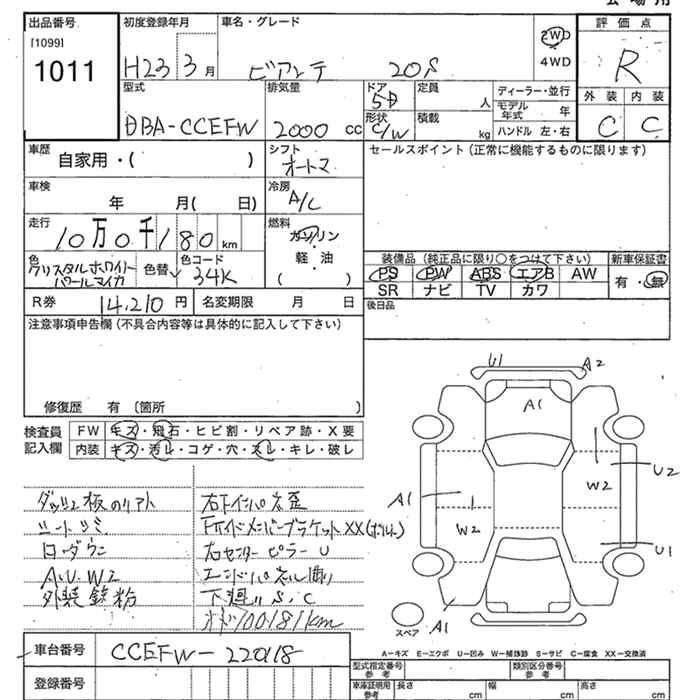 会場用
出品番号
[1099]
1011
初度登録年月
H23 3 月
車名・グレード
ビアンテ 20S
2WD
4WD
評価点
R
外装 内装
C C
型式
DBA-CCEFW
排気量
2000 cc
ドア
5D
形状
C/W
定員
人
積載
kg
ディーラー・並行
モデル年式 年
ハンドル 左・右
車歴
自家用・( )
シフト
オートマ
セールスポイント(正常に機能するものに限ります)
車検
年 月( 日)
冷房
A/C
走行
10万0千180km
燃料
ガソリン
軽・油
( )
色
クリスタルホワイトパールマイカ
色替
色コード
34K
装備品(純正品に限り○をつけて下さい)
PS PW ABS エアB AW
SR ナビ TV カワ
新車保証書
有・無
R券 14,210 円
名変期限 月 日
後日品
注意事項申告欄(不具合内容等は具体的に記入して下さい)
修復歴 有 〔箇所 〕
検査員
記入欄
FW キズ・飛石・ヒビ割・リペア跡・X要
内装 キズ・汚レ・コゲ・穴・スレ・キレ・破レ
U1 A2
A1
W2 U2
A1
W2
U1
A1
スペア
シートシミ
A.U.W2
外装鉄粉
右センターピラーU
下廻りS.C
100181km
A-キズ E-エクボ U-凹み W-補修跡 S-サビ C-腐食 XX-交換済
車台番号 CCEFW-220118
登録番号
型式指定番号
参考
類別区分番号
参考
車庫証明用
参考
長さ cm
幅 cm
高さ cm